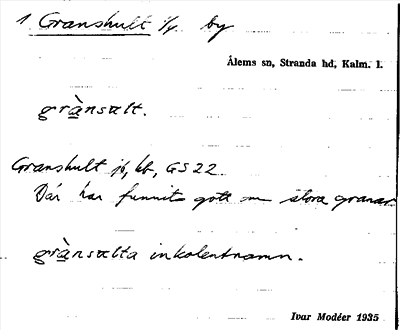 1 Granshult 1/4 by
Ålems sn, Stranda hd, Kalm. l.
grànsult.
Granshult jb, kb, GS 22.
Där har funnits gott om stora granar
grànsulta inkolentnamn.
Ivar Modéer 1935